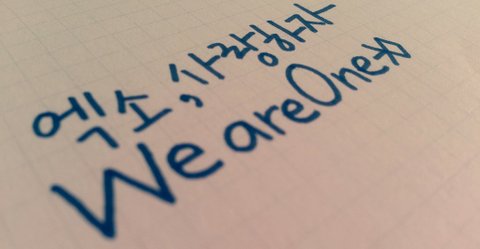 엑소, 사랑하자
We are One